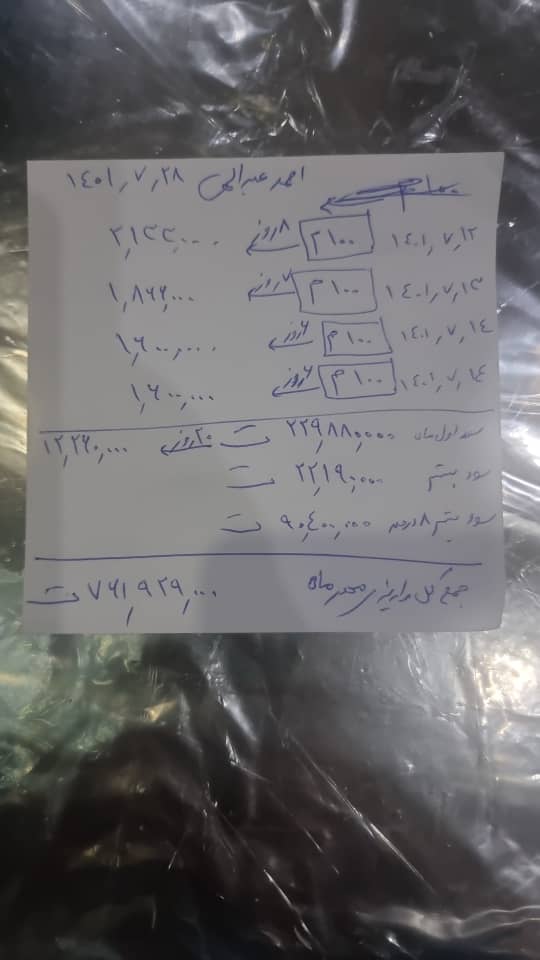 احمد عبدالهی ۱۴۰۱,۷,۲۸
۱۴۰۱,۷,۱۲ ۱۰۰م ۸روز ۲,۱۳۳,۰۰۰
۱۴۰۱,۷,۱۳ ۱۰۰م ۷روز ۱,۸۶۶,۰۰۰
۱۴۰۱,۷,۱۴ ۱۰۰م ۶روز ۱,۶۰۰,۰۰۰
۱۴۰۱,۷,۱۴ ۱۰۰م ۶روز ۱,۶۰۰,۰۰۰
اول ماه ۲۲۹,۸۸۰,۰۰۰ ت ۲۰روز ۱۲,۲۶۰,۰۰۰
سود بیتم ۲۲,۱۹۰,۰۰۰ ت
سود بیتم ۸درصد ۹۰,۴۰۰,۰۰۰ ت
جمع کل واریزی مهر ماه ۷۶۱,۹۲۹,۰۰۰ ت